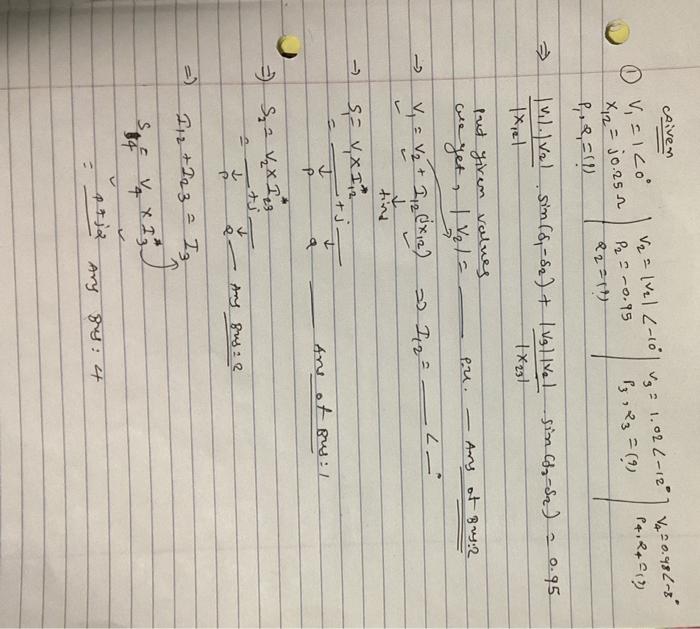 Given
① V₁ = 1∠0° | V₂ = |V₂| ∠-10° | V₃ = 1.02∠-12° | V₄ = 0.98∠-8°
X₁₂ = j0.25 Ω | P₂ = -0.95 | P₃, Q₃ = (?) | P₄, Q₄ = (?)
P₁, Q₁ = (?) | Q₂ = (?)
⇒ |V₁|.|V₂| / |X₁₂| . sin(δ₁-δ₂) + |V₃||V₂| / |X₂₃| . sin(δ₃-δ₂) = 0.95
Put given values
we get, |V₂| = ___ P.U. — Ans of Bus:2
→ V₁ = V₂ + I₁₂(jX₁₂) ⇒ I₁₂ = ___ ∠ __°
find
→ S₁ = V₁ X I₁₂*
= ___ + j ___
P Q ___ Ans of Bus:1
⇒ S₂ = V₂ X I₂₃*
= ___ + j ___
P Q — Ans Bus:2
⇒ I₁₂ + I₂₃ = I₃
S₄ = V₄ X I₃*
= P+jQ Ans Bus:4